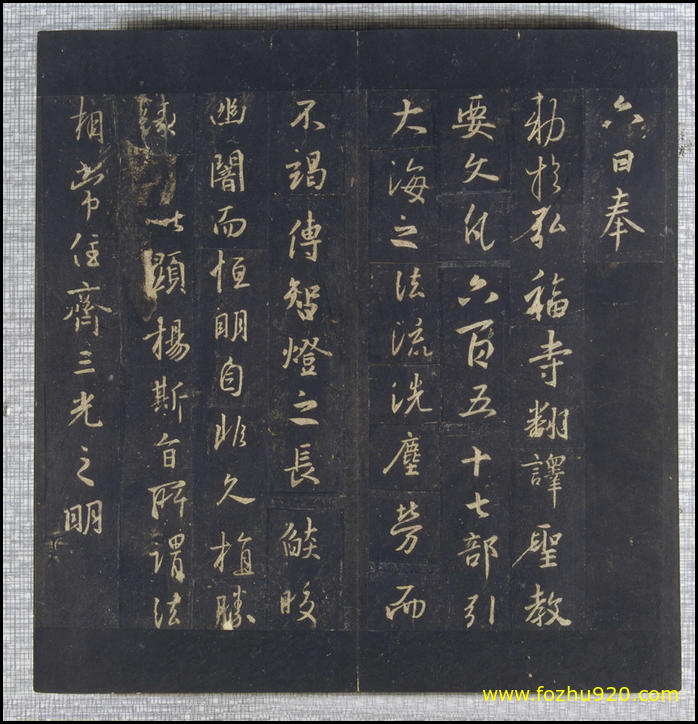 六日奉
勅於弘福寺翻譯聖教
要文凡六百五十七部引
大海之法流洗塵勞而
不竭傳智燈之長𦦨皎
幽闇而恒明自非久植勝
緣何以顯揚斯旨所謂法
相常住齊三光之明
www.fozhu920.com